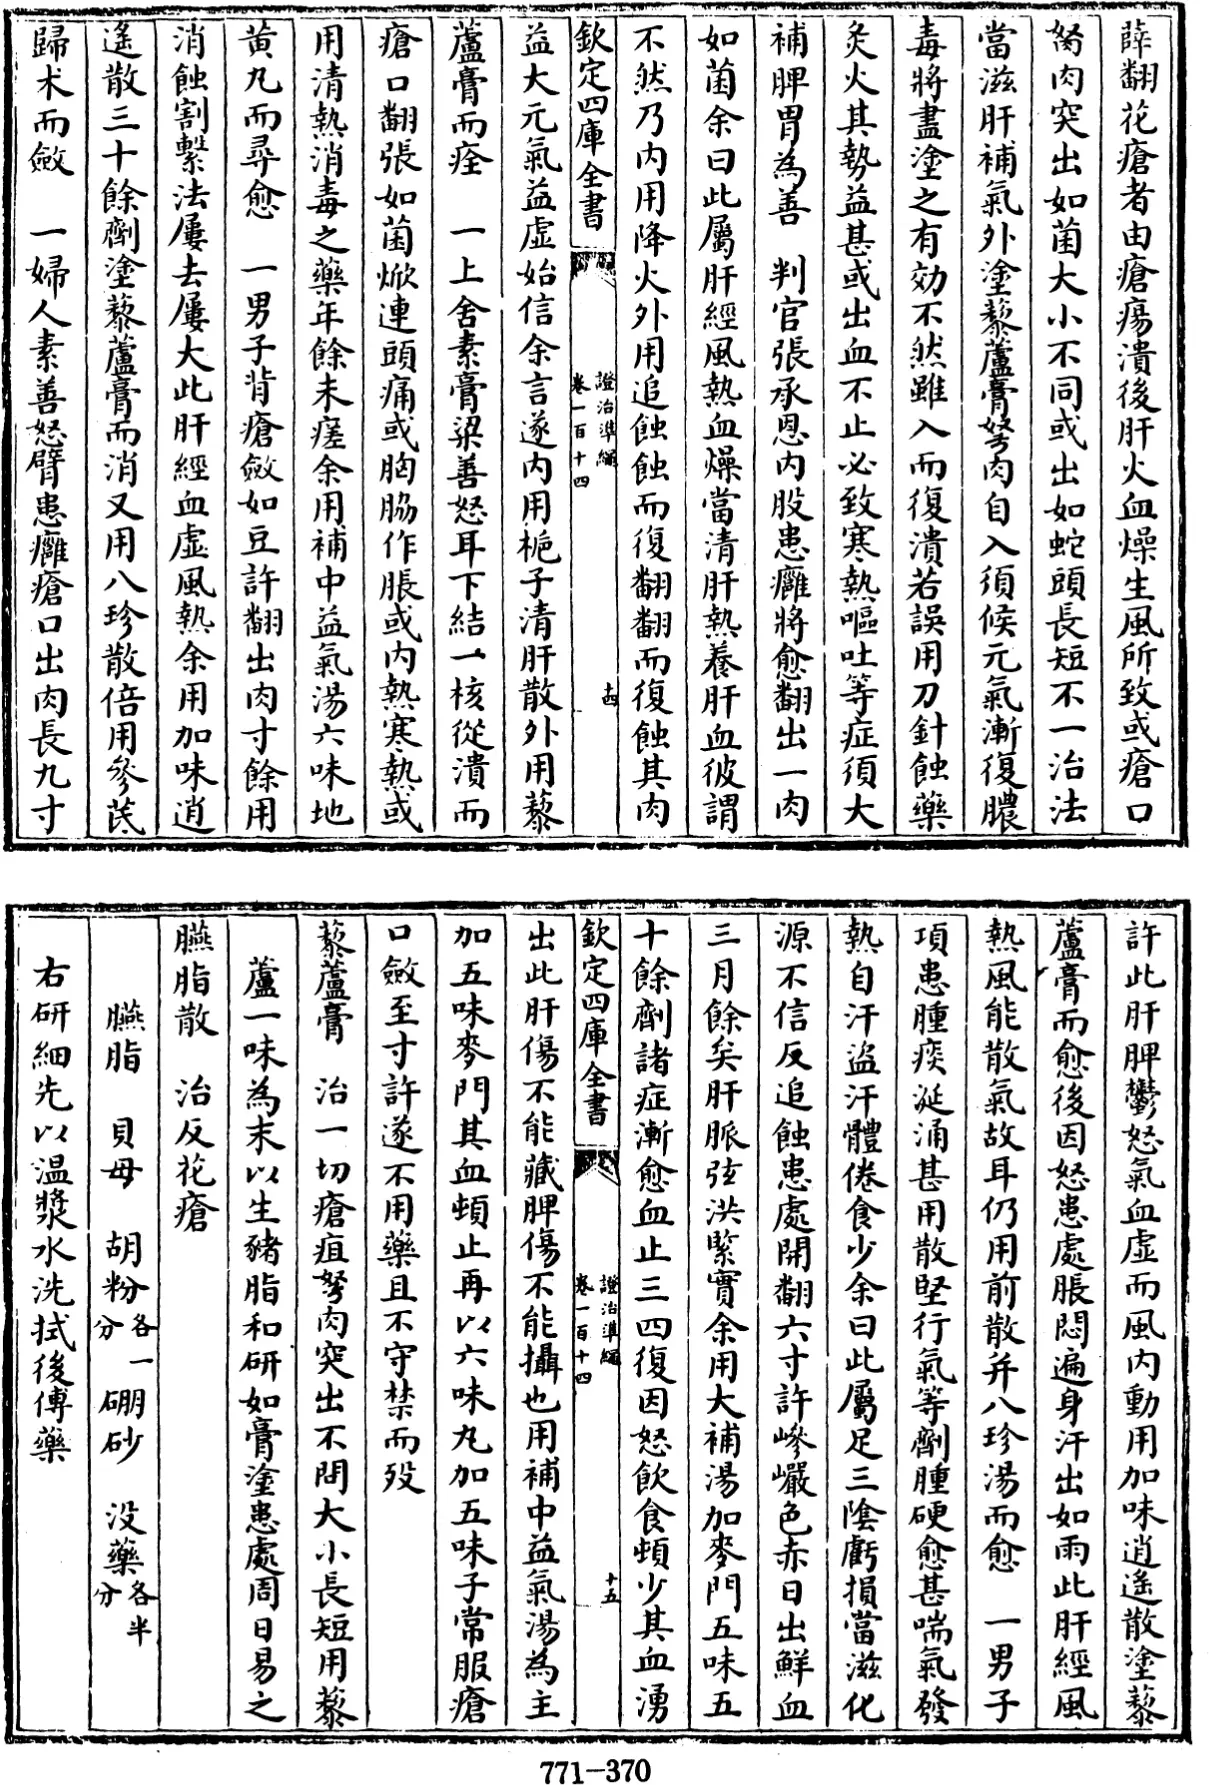 薛翻花瘡者由瘡瘍潰後肝火血燥生風所致或瘡口
努肉突出如菌大小不同或出如蛇頭長短不一治法
當滋肝補氣外塗藜蘆膏努肉自入須候元氣漸復膿
毒將盡塗之有効不然雖入而復潰若誤用刀針蝕藥
灸火其勢益甚或出血不止必致寒熱嘔吐等症須大
補脾胃為善　判官張承恩内股患癰將愈翻出一肉
如菌余曰此屬肝經風熱血燥當清肝熱養肝血彼謂
不然乃内用降火外用追蝕蝕而復翻翻而復蝕其肉
欽定四庫全書
證治準繩
卷一百十四
十四
益大元氣益虚始信余言遂内用梔子清肝散外用藜
蘆膏而痊　一上舍素膏粱善怒耳下結一核從潰而
瘡口翻張如菌焮連頭痛或胸脇作脹或内熱寒熱或
用清熱消毒之藥年餘未瘥余用補中益氣湯六味地
黄丸而尋愈　一男子背瘡斂如豆許翻出肉寸餘用
消蝕割繫法屢去屢大此肝經血虚風熱余用加味逍
遙散三十餘劑塗藜蘆膏而消又用八珍散倍用參芪
歸术而斂　一婦人素善怒臂患癰瘡口出肉長九寸
許此肝脾鬱怒氣血虚而風内動用加味逍遙散塗藜
蘆膏而愈後因怒患處脹悶遍身汗出如雨此肝經風
熱風能散氣故耳仍用前散并八珍湯而愈　一男子
項患腫痰涎涌甚用散堅行氣等劑腫硬愈甚喘氣發
熱自汗盗汗體倦食少余曰此屬足三陰虧損當滋化
源不信反追蝕患處開翻六寸許巉巖色赤日出鮮血
三月餘矣肝脈弦洪緊實余用大補湯加麥門五味五
十餘劑諸症漸愈血止三四復因怒飲食頓少其血湧
欽定四庫全書
證治準繩
卷一百十四
十五
出此肝傷不能藏脾傷不能攝也用補中益氣湯為主
加五味麥門其血頓止再以六味丸加五味子常服瘡
口斂至寸許遂不用藥且不守禁而殁
藜蘆膏　治一切瘡疽弩肉突出不問大小長短用藜
蘆一味為末以生豬脂和研如膏塗患處周日易之
臙脂散　治反花瘡
臙脂　貝母　胡粉各一分　硼砂　没藥各半分
右研細先以温漿水洗拭後傅藥
771-370